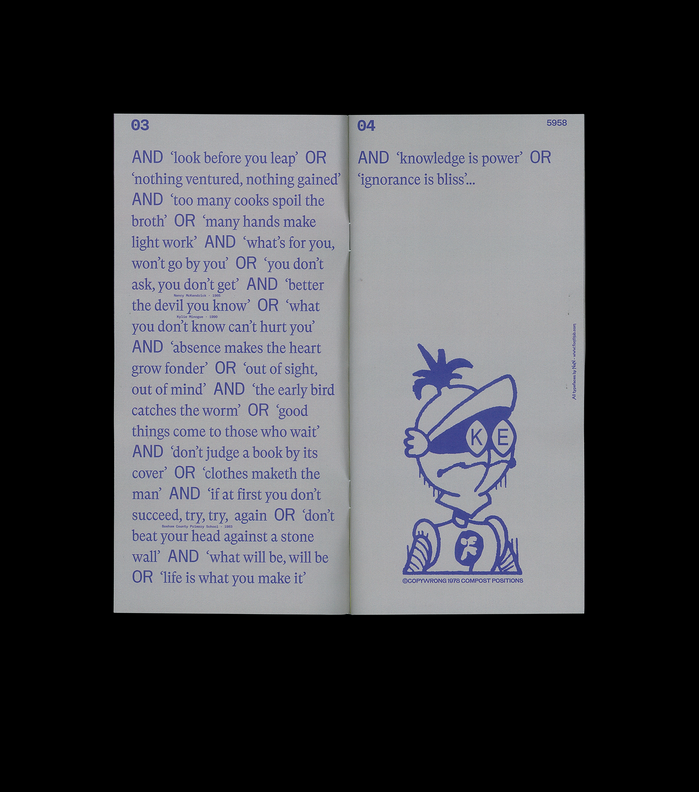 03
AND ‘look before you leap’ OR
‘nothing ventured, nothing gained’
AND ‘too many cooks spoil the
broth’ OR ‘many hands make
light work’ AND ‘what’s for you,
won’t go by you’ OR ‘you don’t
ask, you don’t get’ AND ‘better
the devil you know’ OR ‘what
you don’t know can’t hurt you’
AND ‘absence makes the heart
grow fonder’ OR ‘out of sight,
out of mind’ AND ‘the early bird
catches the worm’ OR ‘good
things come to those who wait’
AND ‘don’t judge a book by its
cover’ OR ‘clothes maketh the
man’ AND ‘if at first you don’t
succeed, try, try, again OR ‘don’t
beat your head against a stone
wall’ AND ‘what will be, will be
OR ‘life is what you make it’
04
5958
AND ‘knowledge is power’ OR
‘ignorance is bliss’...
K E
©COPYWRONG 1976 COMPOST POSITIONS